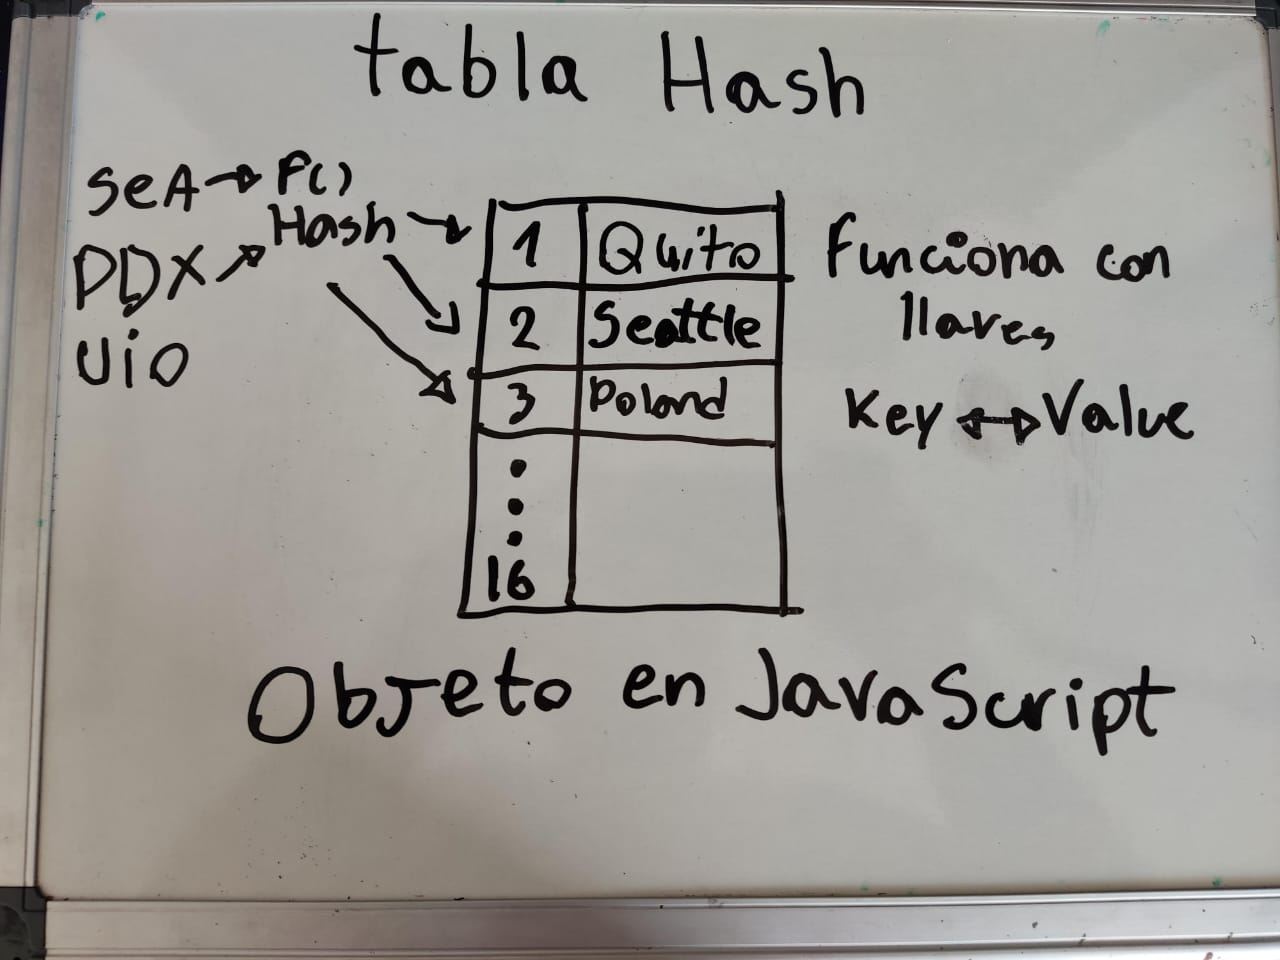 tabla Hash
SeA → F()
Hash →
PDX ↗
UiO
1 Quito
2 Seattle
3 Poland
16
Funciona con
llaves
Key ↔ Value
Objeto en JavaScript